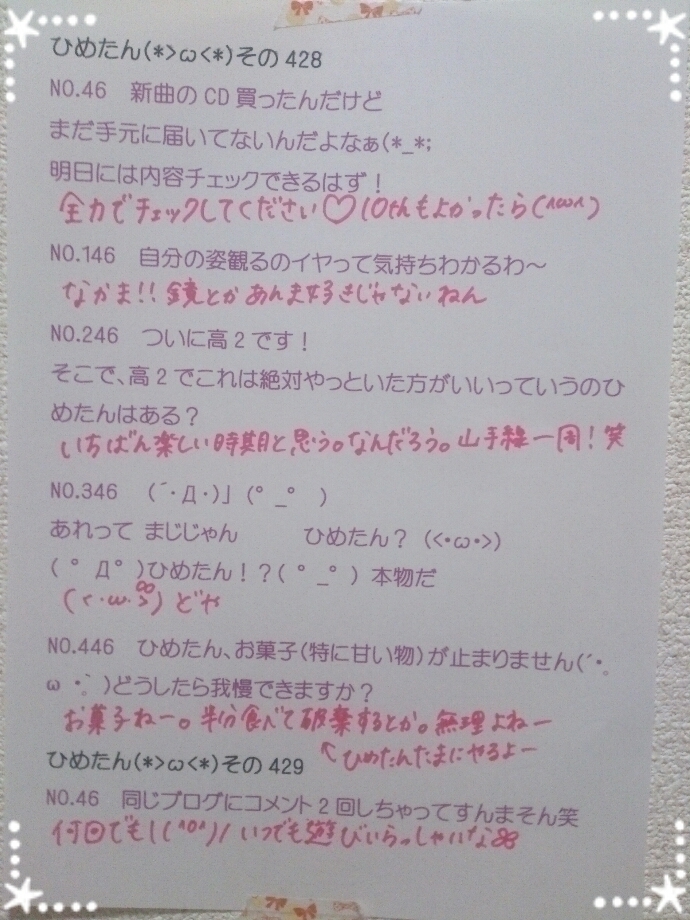 ひめたん(*>ω<*)その428
NO.46　新曲のCD買ったんだけど
まだ手元に届いてないんだよなぁ(*_*;
明日には内容チェックできるはず！
全力でチェックしてください♡10thもよかったら(^ω^)
NO.146　自分の姿観るのイヤって気持ちわかるわ～
なかま!!鏡とかあんま好きじゃないねん
NO.246　ついに高2です！
そこで、高2でこれは絶対やっといた方がいいっていうのひ
めたんはある？
いちばん楽しい時期と思う。なんだろう。山手線一周！笑
NO.346　(´･Д･)」(°_°　)
あれって まじじゃん　　　ひめたん？ (<･ω･>)
(゜Д゜)ひめたん！？(゜_゜) 本物だ
(<･ω･>) どや
NO.446　ひめたん、お菓子(特に甘い物)が止まりません(´･。
ω･｀)どうしたら我慢できますか？
お菓子ねー。半分食べて破棄するとか。無理よねー
↖ひめたんたまにやるよー
ひめたん(*>ω<*)その429
NO.46　同じブログにコメント2回しちゃってすんまそん笑
何回でも!(^o^)/いつでも遊びいらっしゃいな